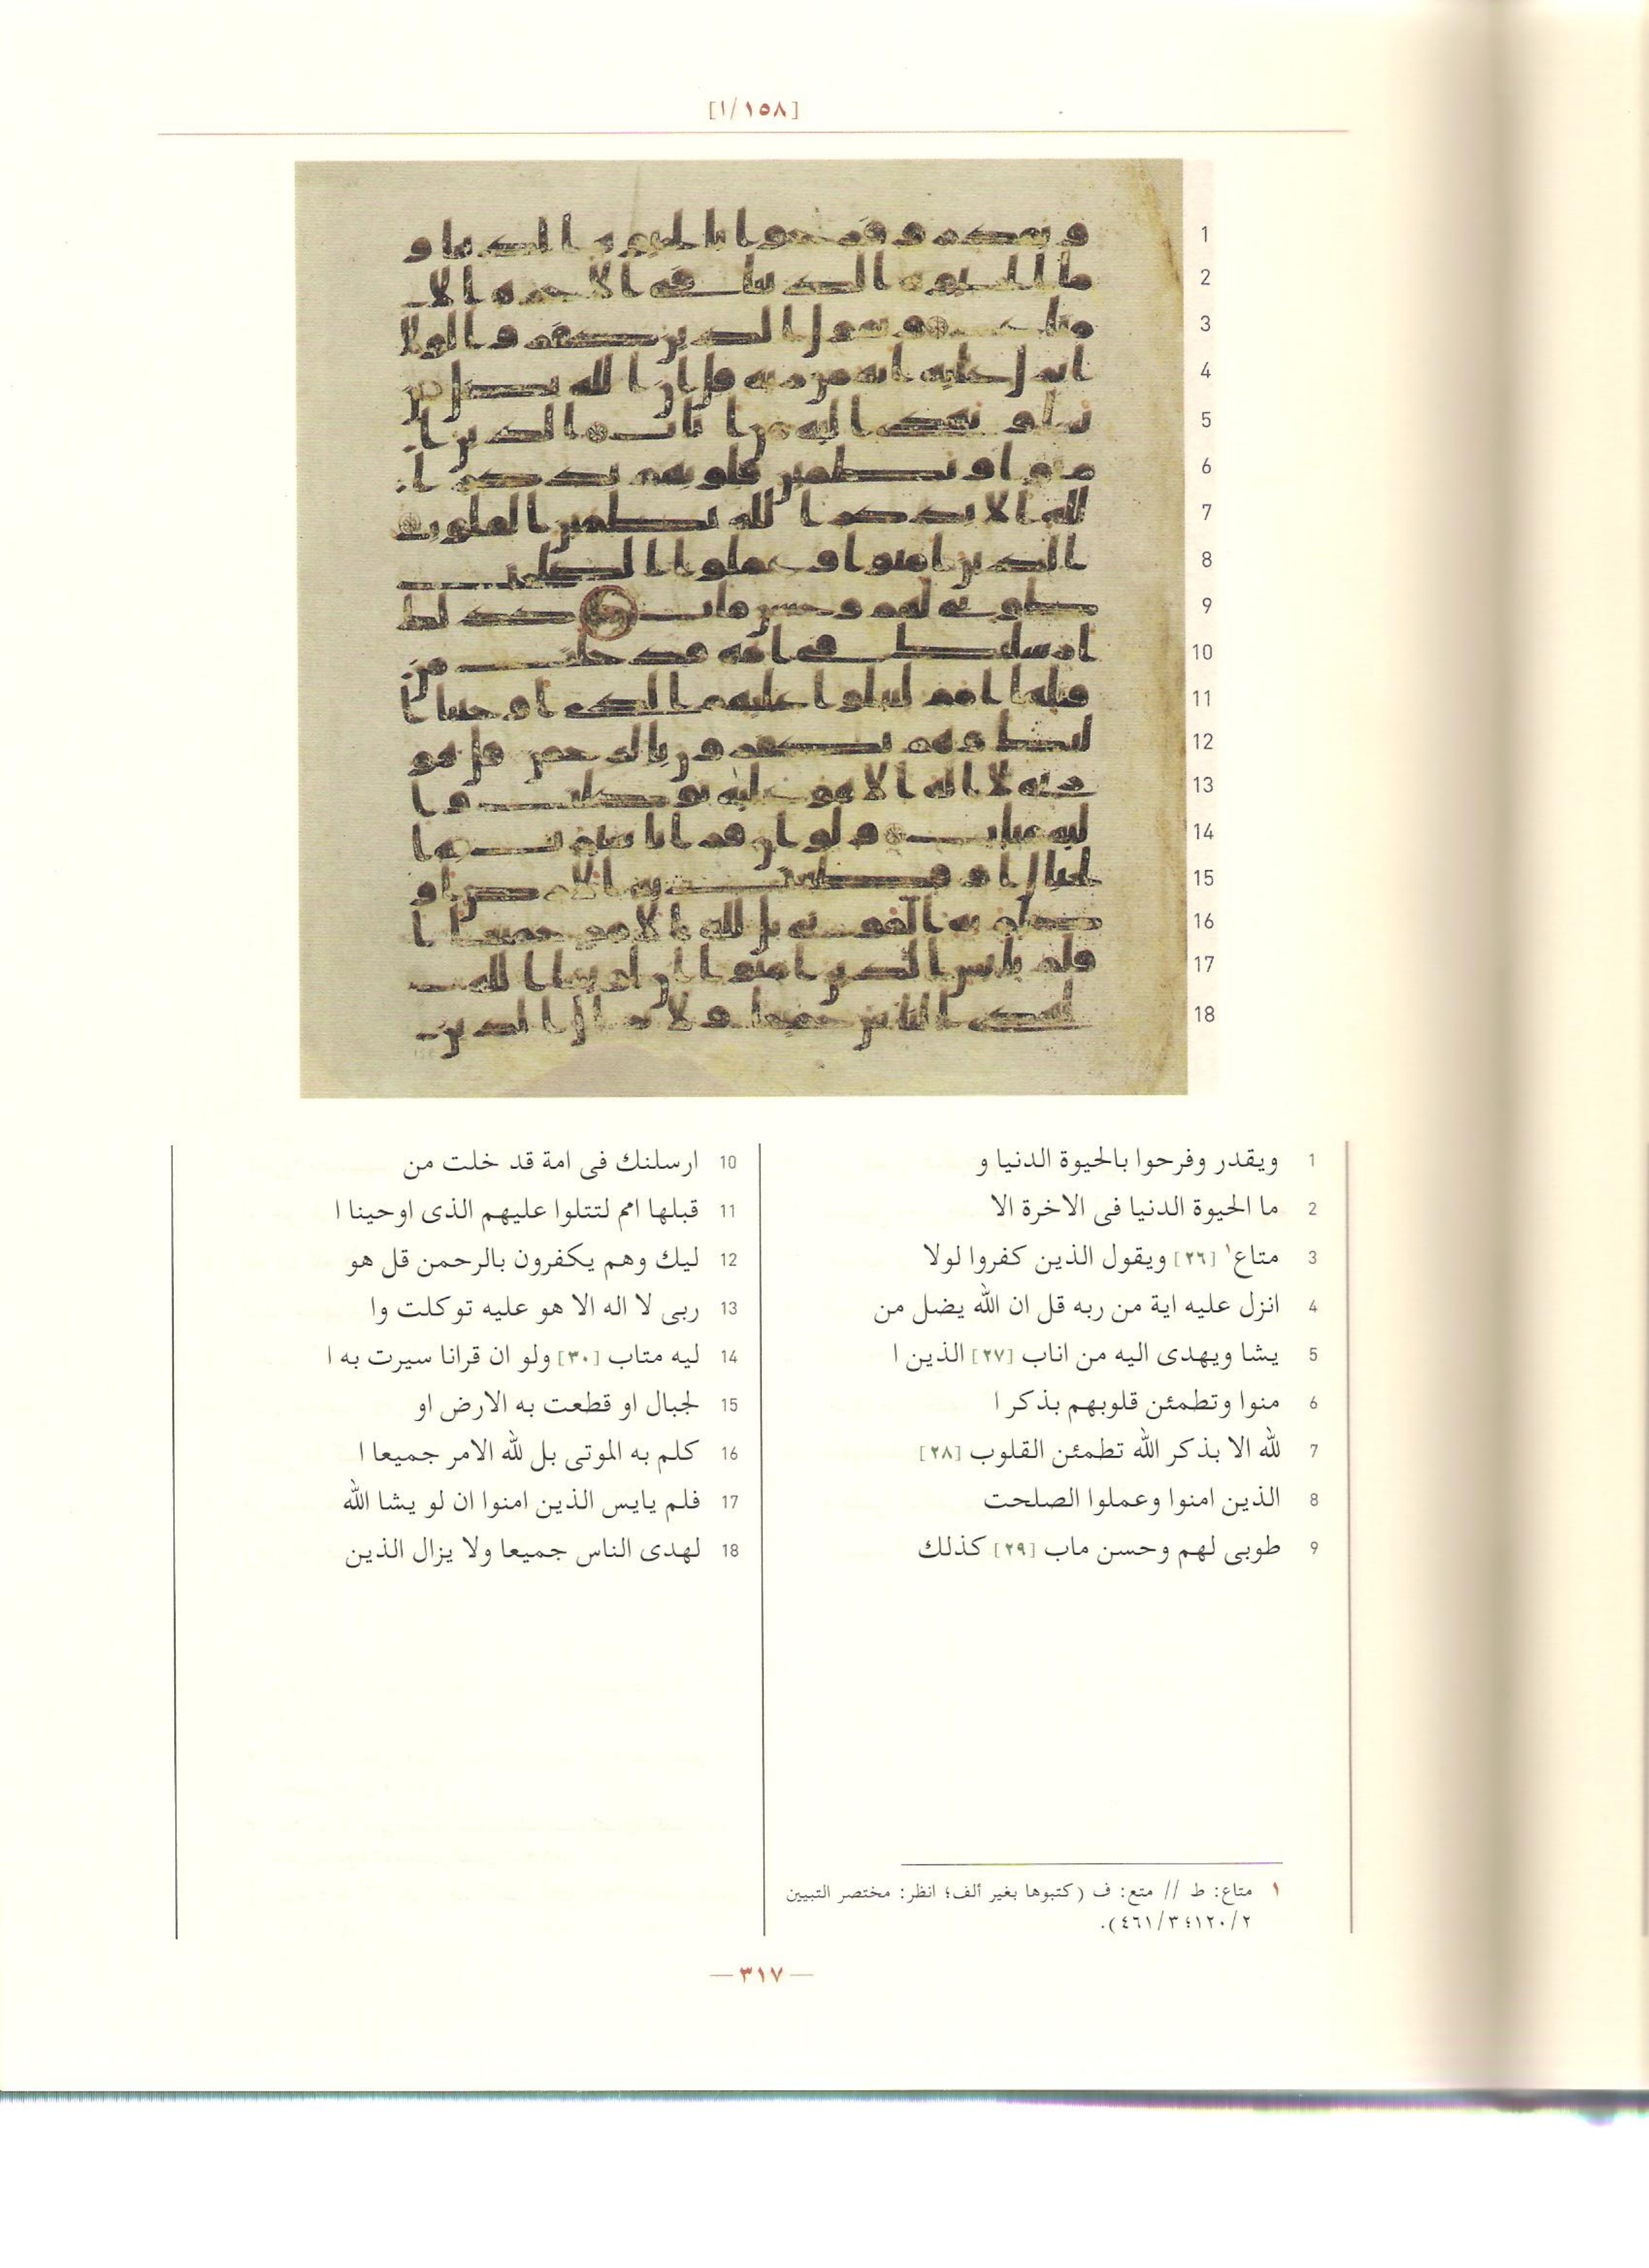 [١/١٥٨]
1 ويقدر وفرحوا بالحيوة الدنيا و
2 ما الحيوة الدنيا فى الاخرة الا
3 متاع١ [٢٦] ويقول الذين كفروا لولا
4 انزل عليه اية من ربه قل ان الله يضل من
5 يشا ويهدى اليه من اناب [٢٧] الذين ا
6 منوا وتطمئن قلوبهم بذكر ا
7 لله الا بذكر الله تطمئن القلوب [٢٨]
8 الذين امنوا وعملوا الصلحت
9 طوبى لهم وحسن ماب [٢٩] كذلك
10 ارسلنك فى امة قد خلت من
11 قبلها امم لتتلوا عليهم الذى اوحينا ا
12 ليك وهم يكفرون بالرحمن قل هو
13 ربى لا اله الا هو عليه توكلت وا
14 ليه متاب [٣٠] ولو ان قرانا سيرت به ا
15 لجبال او قطعت به الارض او
16 كلم به الموتى بل لله الامر جميعا ا
17 فلم يايس الذين امنوا ان لو يشا الله
18 لهدى الناس جميعا ولا يزال الذين
١ متاع: ط // متع: ف (كتبوها بغير ألف؛ انظر: مختصر التبيين
٢/١٢٠؛ ٣/٤٦١).
—٣١٧—